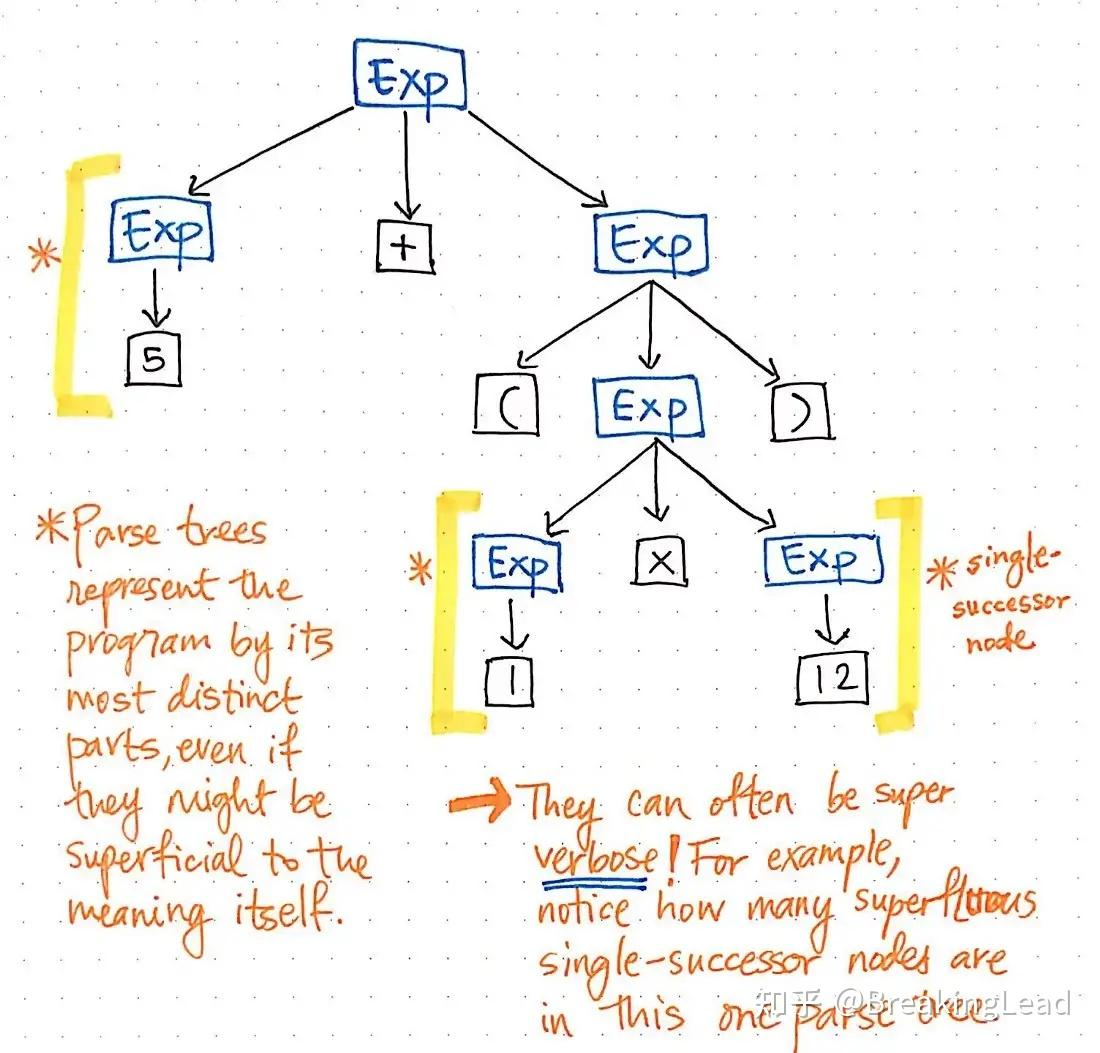 Exp
Exp
+
Exp
5
(
Exp
)
Exp
x
Exp
1
12
*
*
*single-
successor
node
*Parse trees
represent the
program by its
most distinct
parts, even if
they might be
superficial to the
meaning itself.
→ They can often be super
verbose! For example,
notice how many superfluous
single-successor nodes are
in this one parse tree
知乎 @BreakingLead